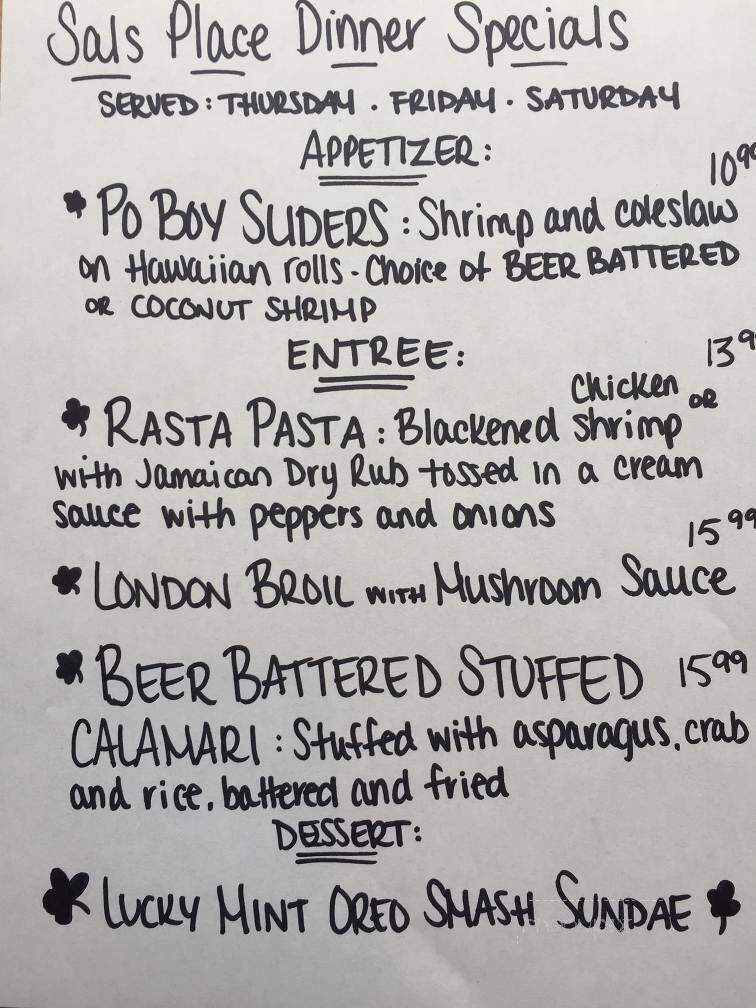 Sals Place Dinner Specials
SERVED: THURSDAY . FRIDAY . SATURDAY
APPETIZER:
10 99
PO BOY SLIDERS: Shrimp and coleslaw
on Hawaiian rolls - Choice of BEER BATTERED
OR COCONUT SHRIMP
ENTREE:
13 9
Chicken OR
RASTA PASTA: Blackened shrimp
with Jamaican Dry Rub tossed in a cream
sauce with peppers and onions
15 99
LONDON BROIL WITH Mushroom Sauce
BEER BATTERED STUFFED 15 99
CALAMARI: Stuffed with asparagus, crab
and rice, battered and fried
DESSERT:
LUCKY MINT OREO SMASH SUNDAE